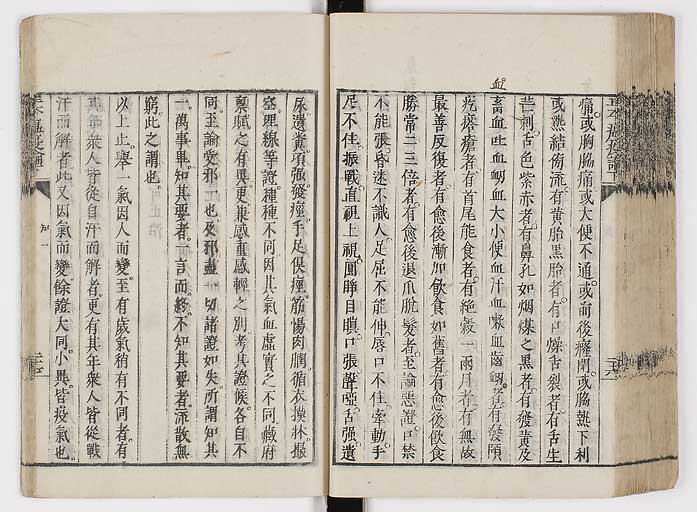 痛。或胸脇痛或大便不通。或前後癃閉。或協熱下利
或熱結傍流。有黄胎黒胎者。有口燥舌裂者有舌生
芒刺。舌色紫赤者。有鼻孔如烟煤之黒者。有發黄及
血
畜血吐血衂血大小便血汗血嗽血齒衂者有發頤
疙瘩瘡者有首尾能食者。有絶穀一兩月者有無故
最善反復者。有愈後漸加飲食如舊者有愈後飲食
勝常二三倍者。有愈後退爪脱髪者。至論惡證口禁
不能張昏迷不識人。足屈不能伸。唇口不住牽動。手
足不住振戰。直視上視。圓睁目瞋口張聲啞。舌強。遺
尿。遺糞。項強發痙。手足俱瘞筋惕肉瞤循衣摸床撮
空理線等證。種種不同因其氣血虛實之不同。臟府
禀賦之有異更兼感重感輕之別。考其證候。各自不
同。至論受邪一也。及邪盡一切諸證如失。所謂知其
一萬事畢。知其要者。一言而終。不知其要者。流散無
窮。此之謂也。
以上止。舉一氣因人而變。至有歳氣稍有不同者。有
其年衆人皆從自汗而解者。更有其年衆人皆從戰
汗而解者此又因氣而變。餘證大同。小異。皆疫氣也。
知一